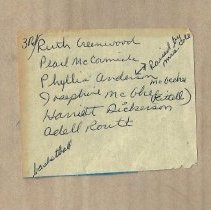 3rd/ Ruth Greenwood
Pearl McCormick
Phyllis Anderson
Josephine McGhee (Kittell)
Harriett Dickerson
Adell Routt
→ Raised by
Mrs
McGechie
basketball